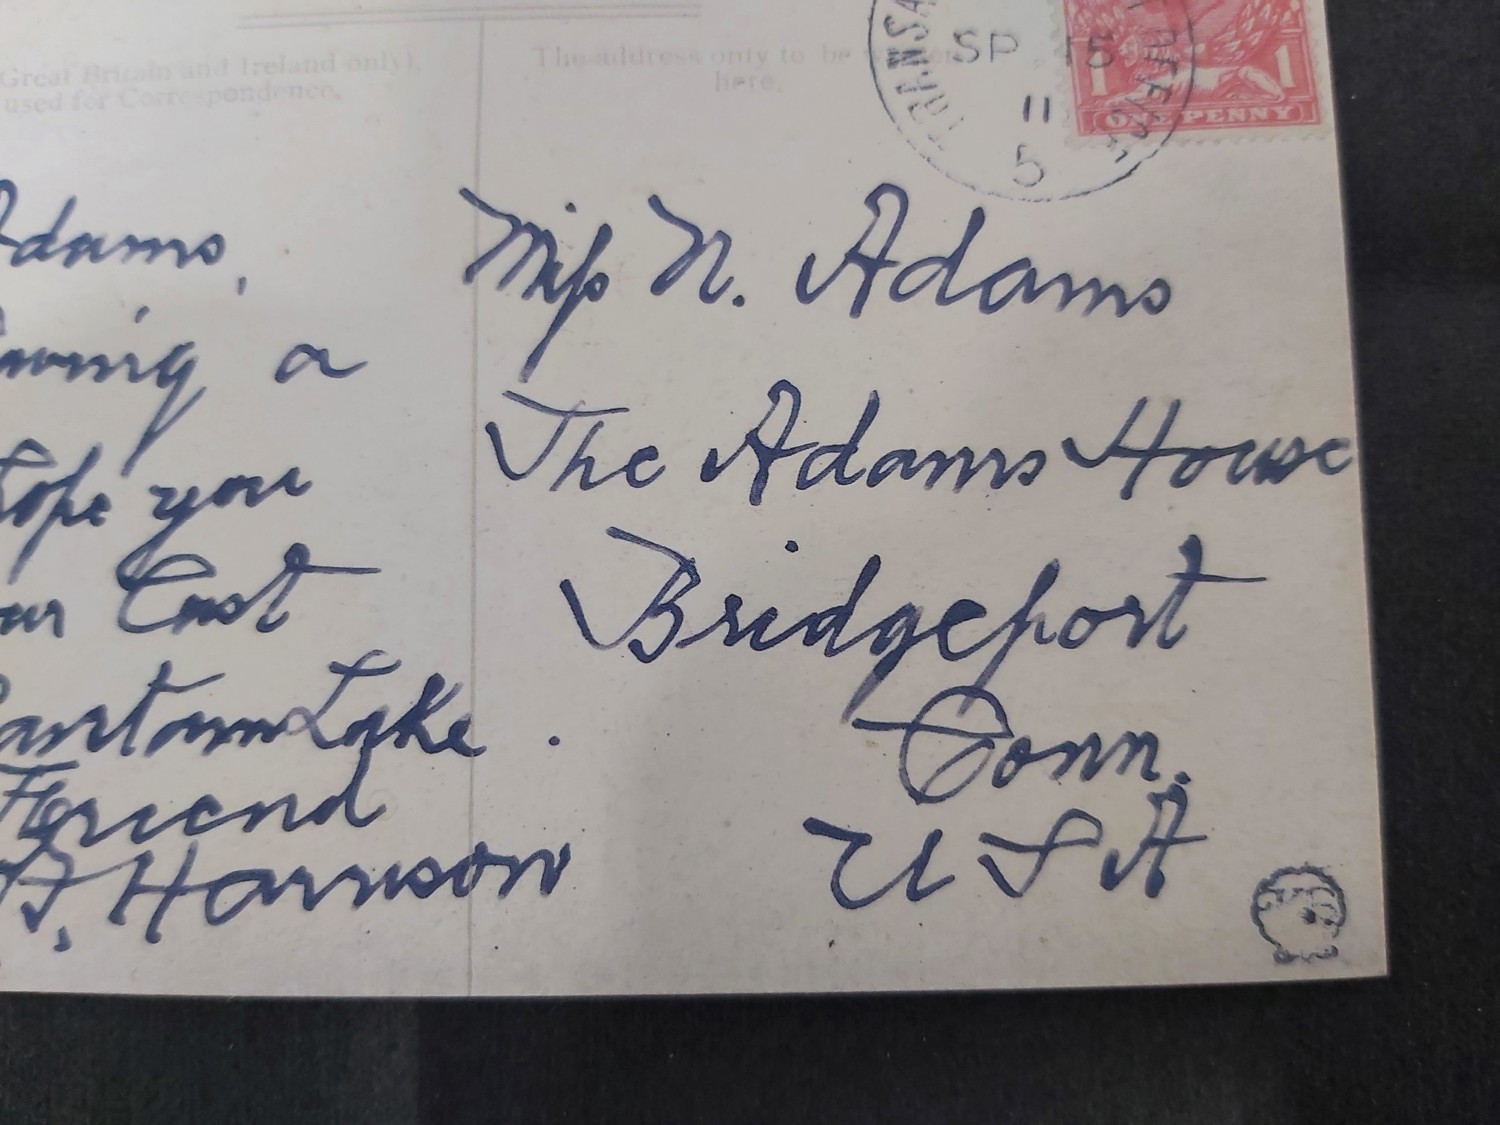 (Great Britain and Ireland only),
used for Correspondence.
The address only to be
here.
TRANSA
SP 15
11
5
1 1
ONE PENNY
Adams,
a
hope you
Cast
Bantam Lake.
Friend
Harrison
Miss N. Adams
The Adams House
Bridgeport
Conn.
U S A